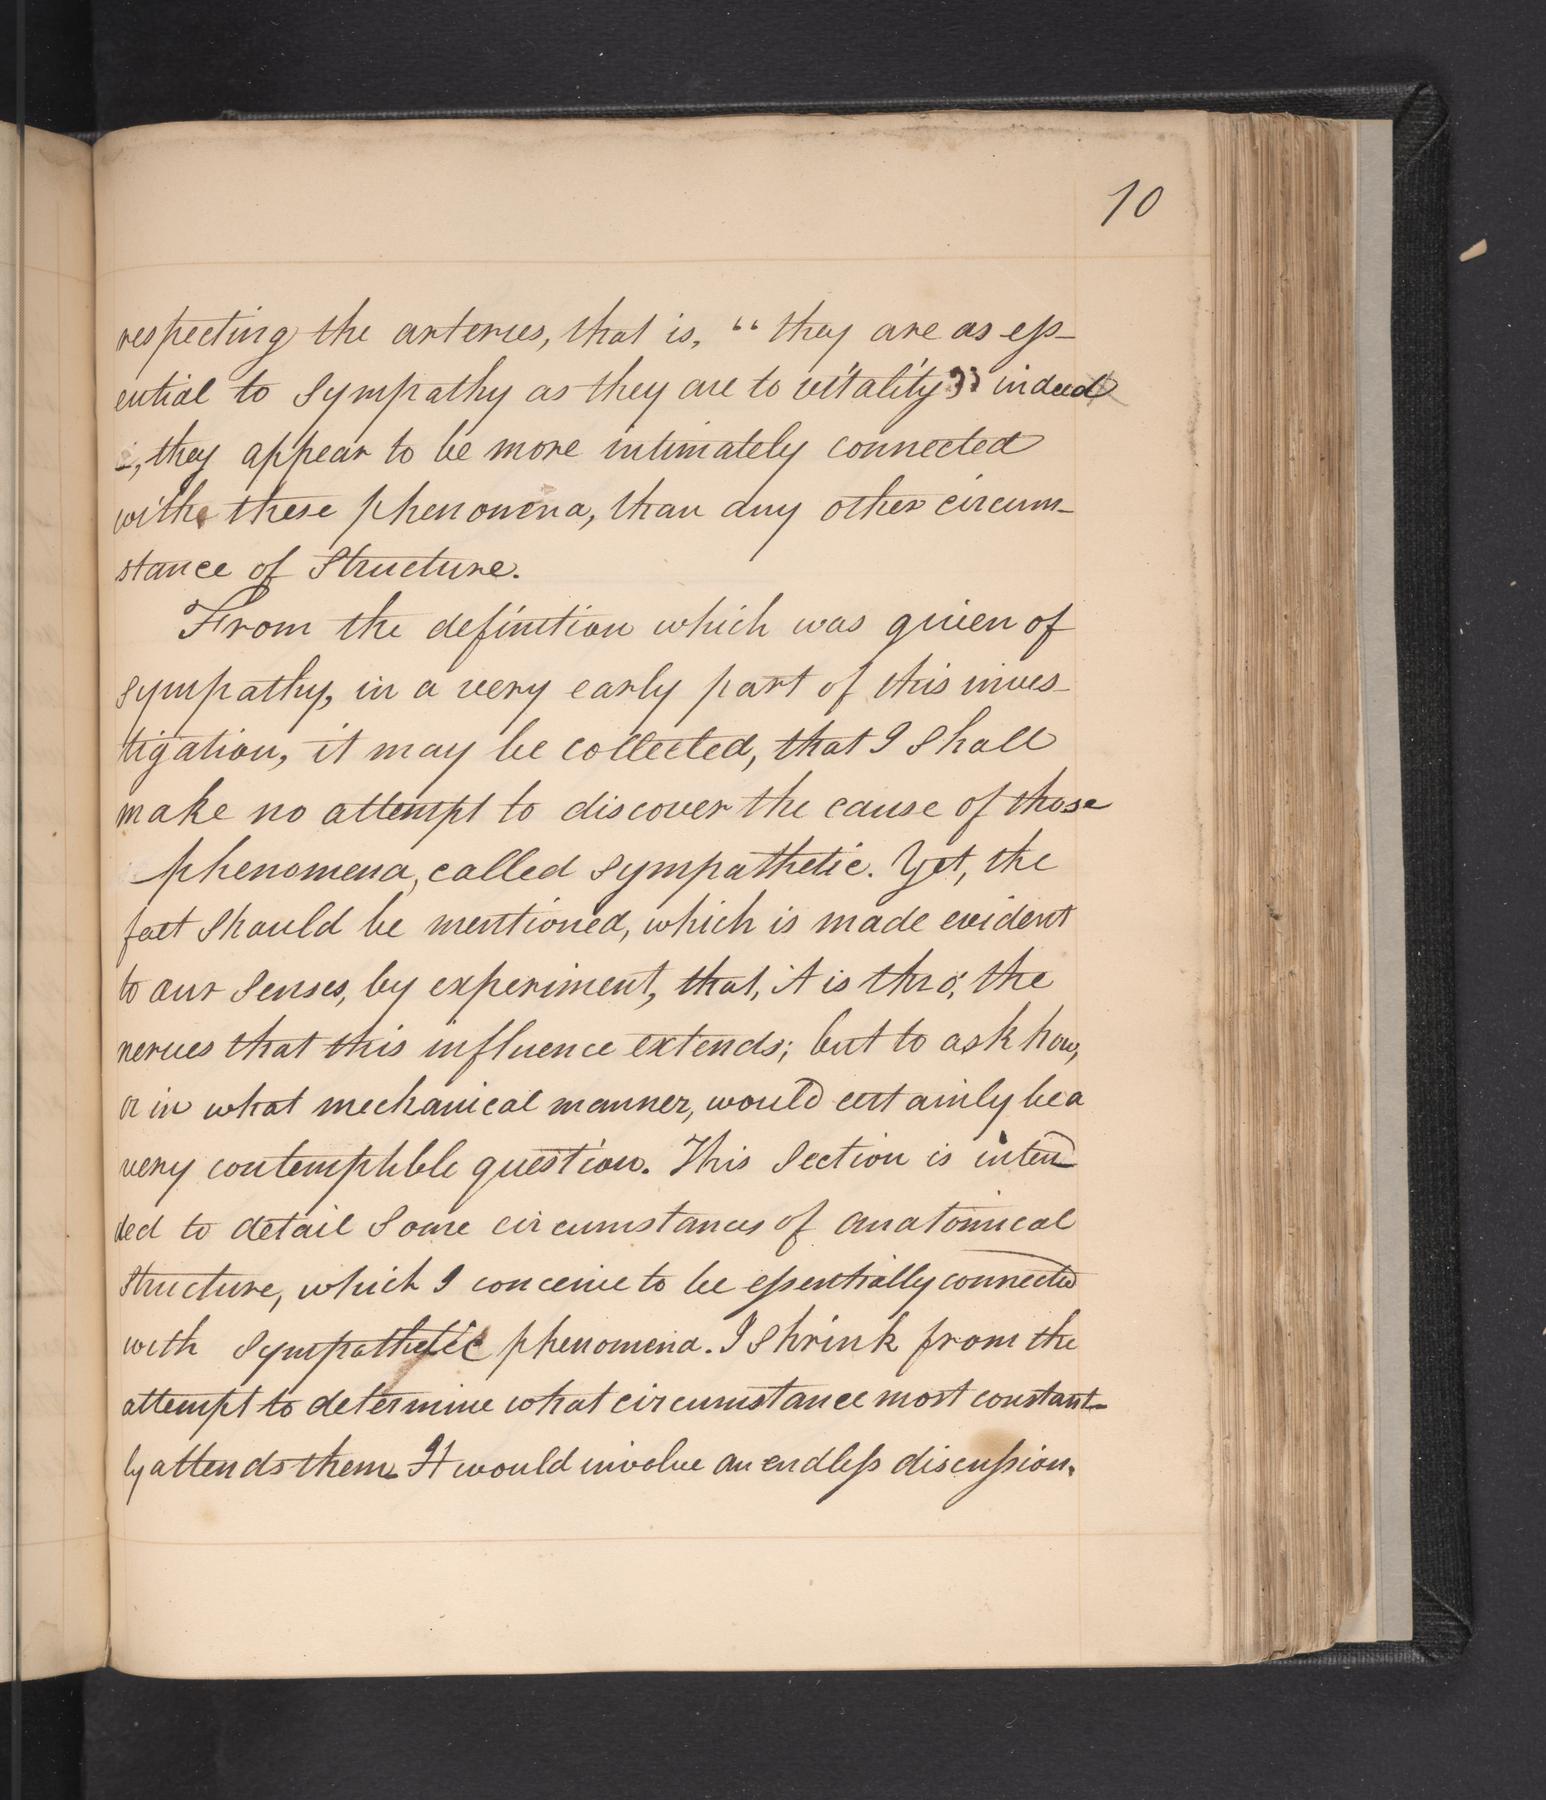 10
respecting the arteries, that is, "they are as ess-
ential to sympathy as they are to vitality" indeed
, they appear to be more intimately connected
with these phenomena, than any other circum-
stance of Structure.
From the definition which was given of
sympathy, in a very early part of this inves-
tigation, it may be collected, that I shall
make no attempt to discover the cause of those
phenomena, called sympathetic. Yet, the
fact should be mentioned, which is made evident
to our senses, by experiment, that, it is thro', the
nerves that this influence extends; but to ask how,
or in what mechanical manner, would certainly be a
very contemptible question. This Section is inten
ded to detail some circumstances of anatomical
structure, which I conceive to be essentially connected
with sympathetic phenomena. I shrink from the
attempt to determine what circumstance most constant-
ly attends them. It would involve an endless discussion.